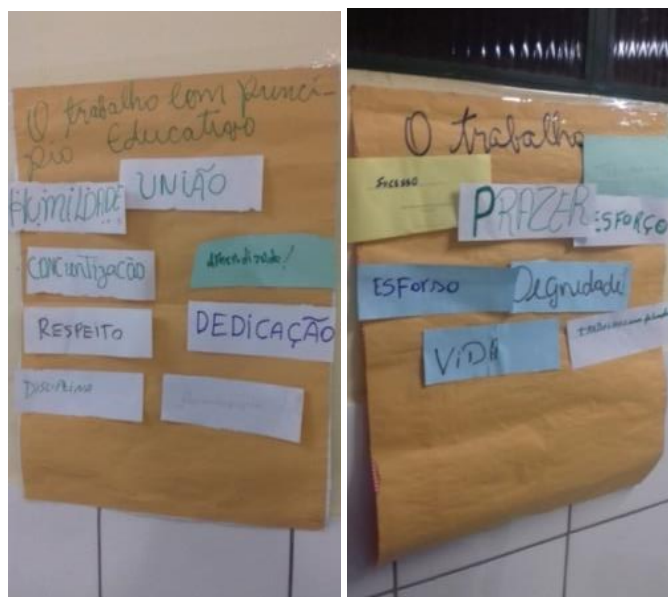 O trabalho com princí-
pio Educativo
HUMILDADE
UNIÃO
CONCIENTIZAÇÃO
aprendizado!
RESPEITO
DEDICAÇÃO
DISCIPLINA
O trabalho
Sucesso
PRAZER
ESFORÇO
ESFORSO
Dignidade
VIDA